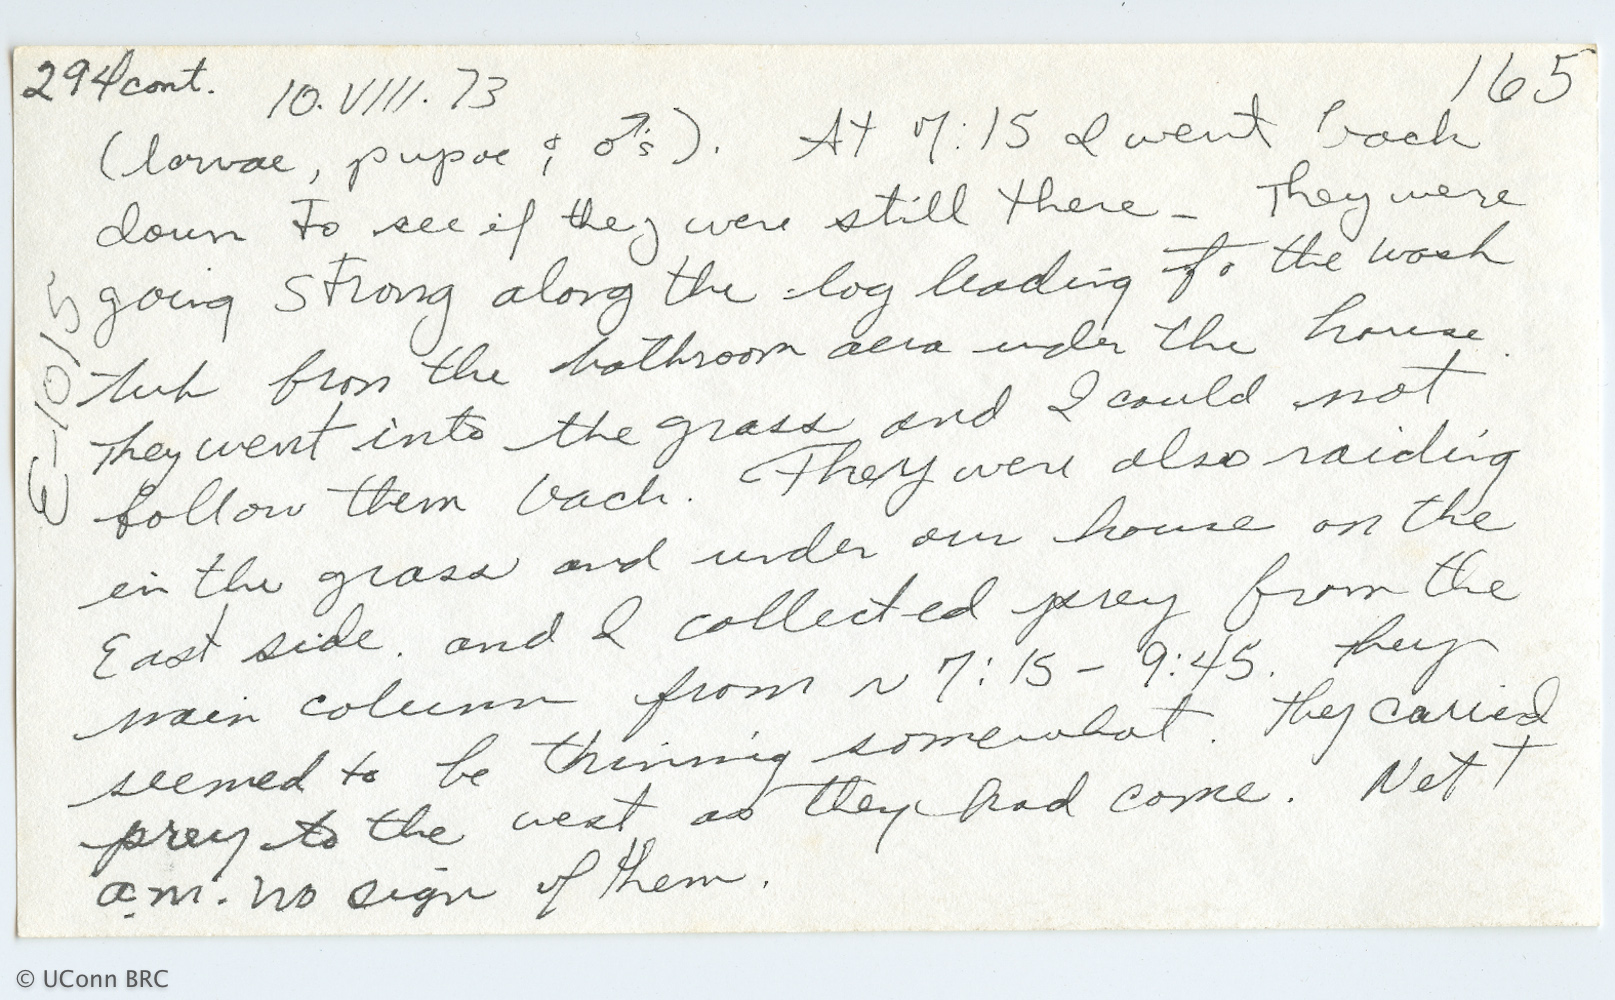 294 cont. 10.VIII.73 165
(larvae, pupae & ♂'s). At 7:15 I went back
down to see if they were still there - They were
going strong along the log leading to the wash
tub from the bathroom aera under the house.
They went into the grass and I could not
follow them back. They were also raiding
in the grass and under our house on the
East side. and I collected prey from the
main column from ~ 7:15 - 9:45. They
seemed to be thinning somewhat. They caried
prey to the west as they had come. Net T
a.m. no sign of them.
E-1015
© UConn BRC